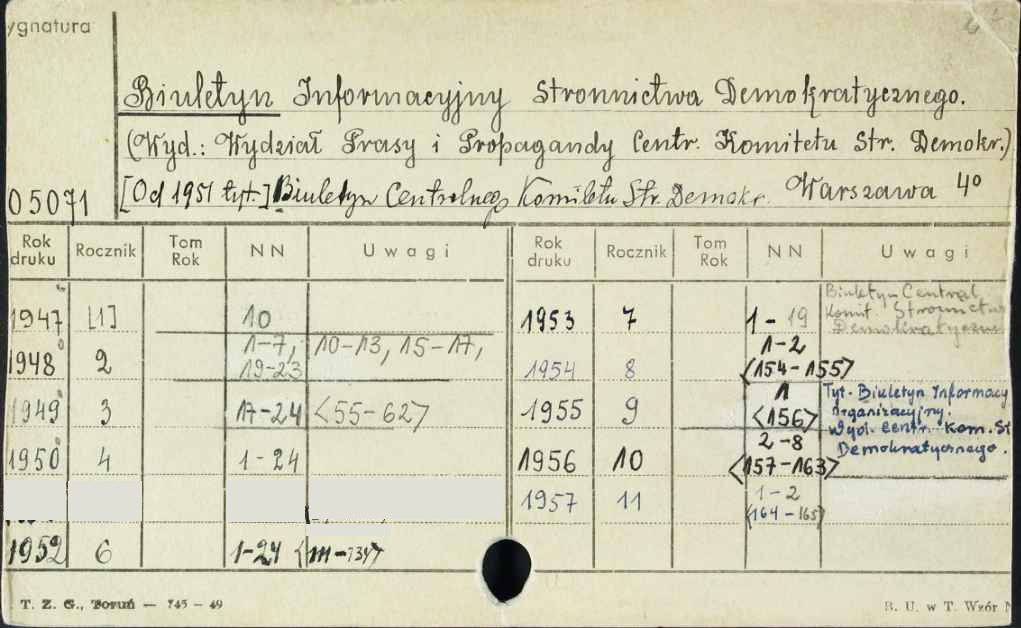 ygnatura
Biuletyn Informacyjny Stronnictwa Demokratycznego.
(Wyd.: Wydział Prasy i Propagandy Centr. Komitetu Str. Demokr.)
05071 [Od 1951 tyt.] Biuletyn Centralnego Komitetu Str. Demokr. Warszawa 4°
Rok druku Rocznik Tom Rok NN Uwagi Rok druku Rocznik Tom Rok NN Uwagi
1947 [1] 10
1948 2 1-7, 10-13, 15-17,
19-23
1949 3 17-24 <55-62>
1950 4 1-24
1952 6 1-24
1953 7 1-19 Biuletyn Central.
Komit. Stronnictwa
Demokratyczne
1954 8 1-2
<154-155>
1955 9 1 Tyt. Biuletyn Informacy
<156> organizacyjny.
Wyd. Centr. Kom. St
Demokratycznego.
1956 10 2-8
<157-163>
1957 11 1-2
<164-165>
T. Z. G., Toruń — 745 - 49
B. U. w T. Wzór